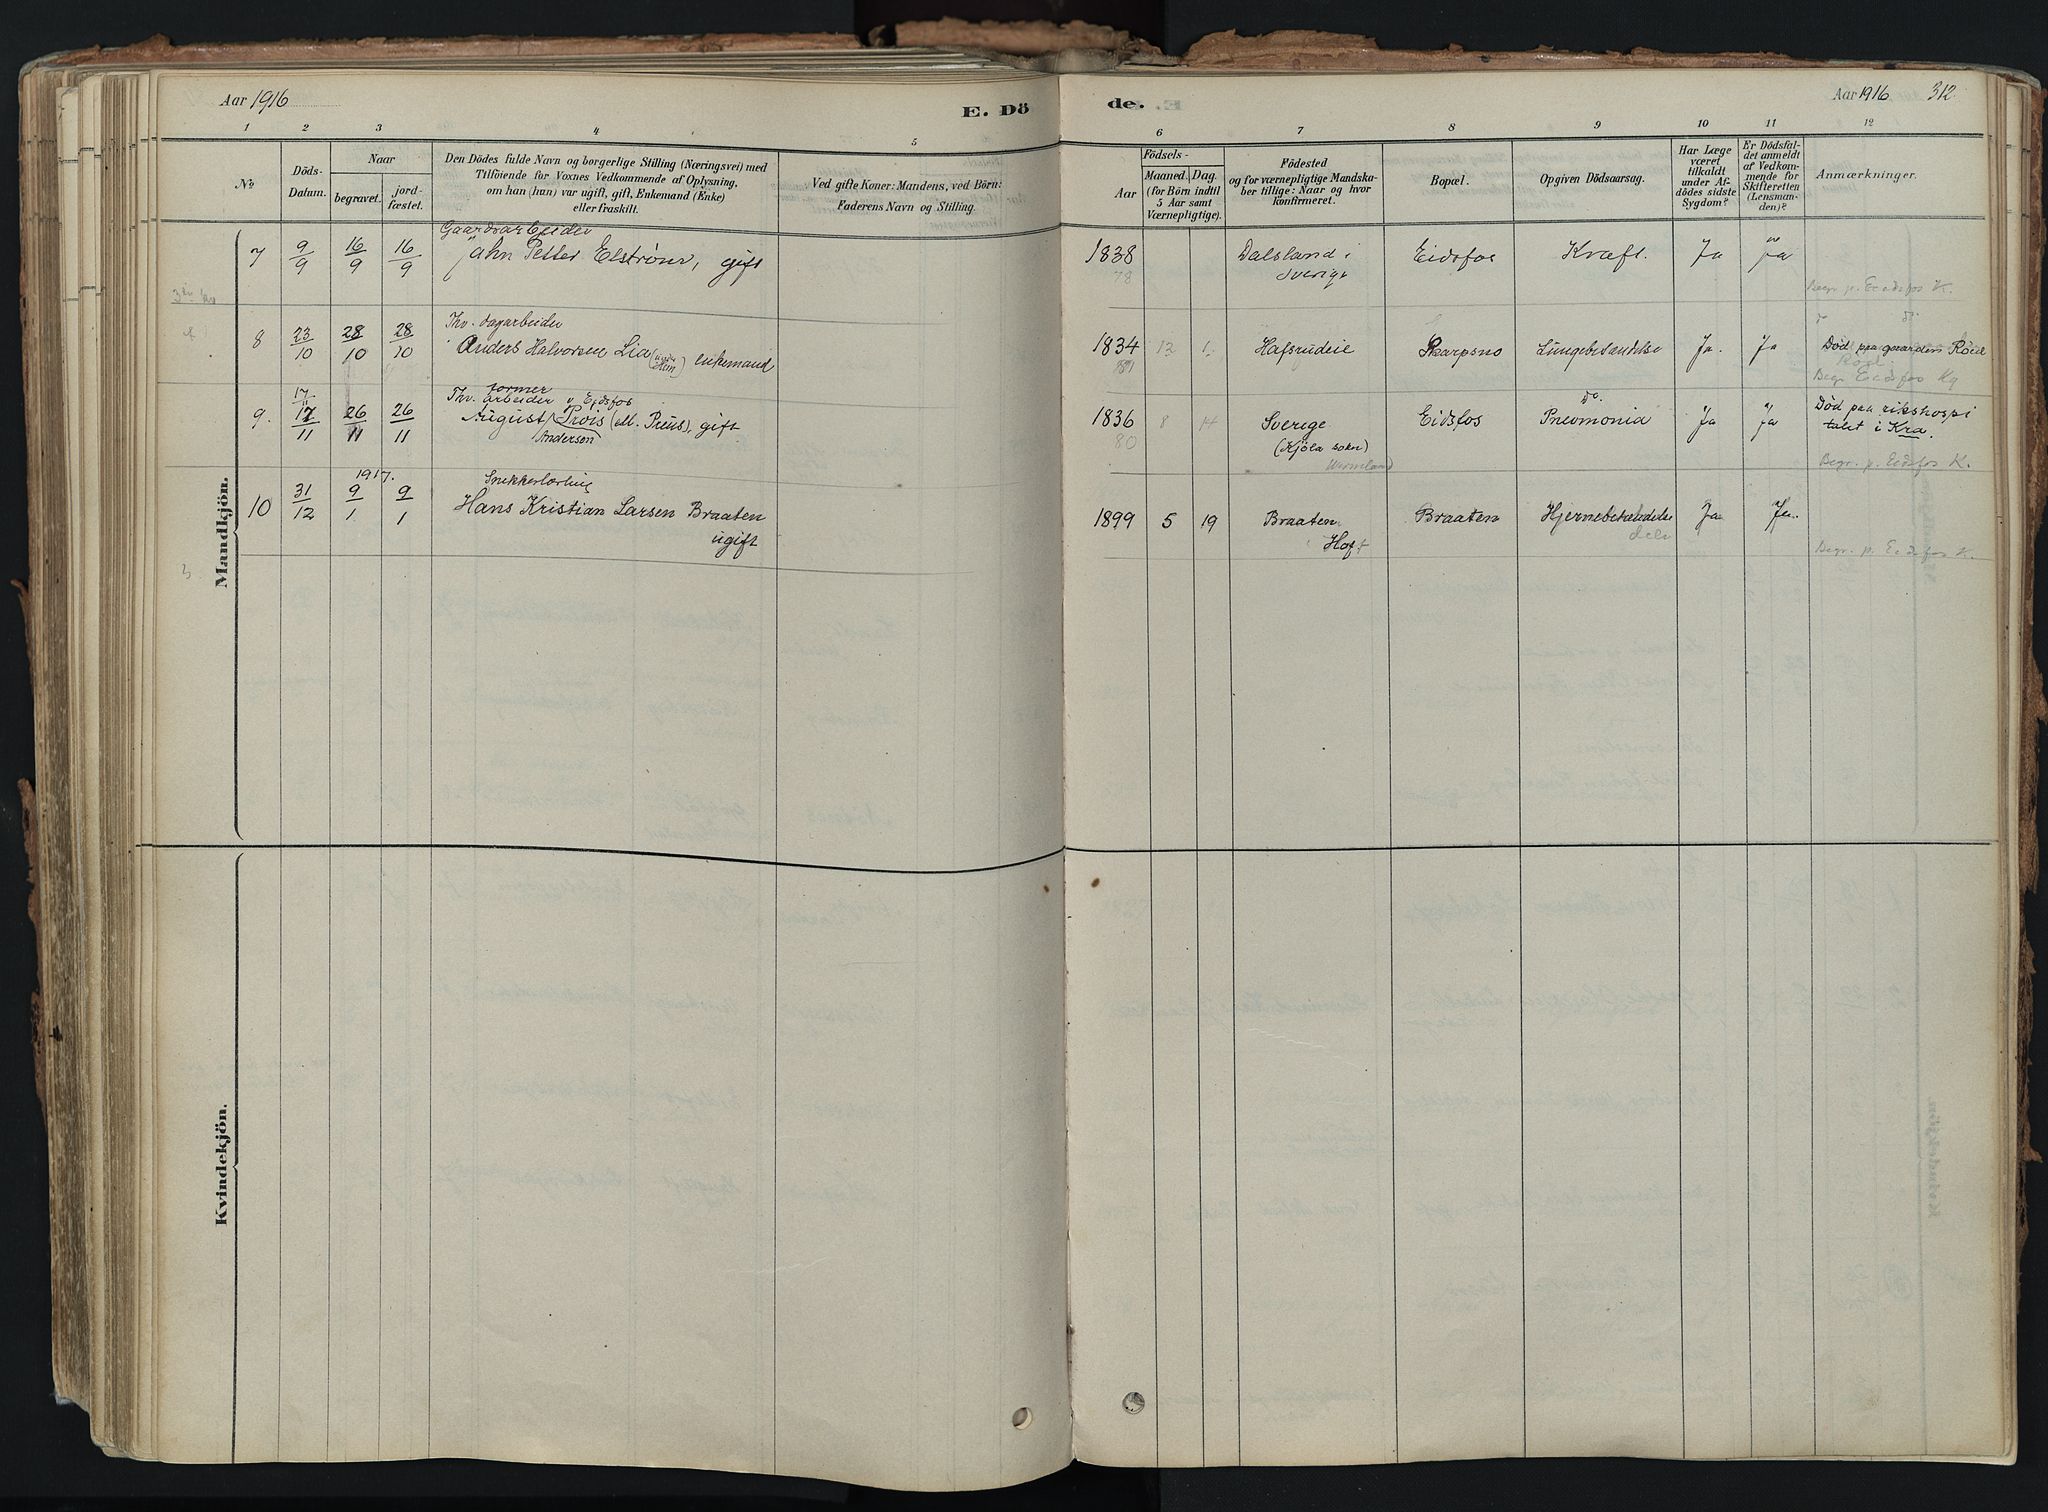 Aar 1916
E. Dö
de.
Aar 1916
312
1 2 3 4 5 6 7 8 9 10 11 12
No
Döds-
Datum.
Naar
begravet.
jord-
fæstet.
Den Dödes fulde Navn og borgerlige Stilling (Næringsvei) med
Tilföiende for Voxnes Vedkommende af Oplysning,
om han (hun) var ugift, gift, Enkemand (Enke)
eller fraskilt.
Ved gifte Koner: Mandens, ved Börn:
Faderens Navn og Stilling.
Födsels-
Aar
Maaned. Dag.
(for Börn indtil
5 Aar samt
Værnepligtige).
Födested
og for værnepligtige Mandska-
ber tillige: Naar og hvor
konfirmeret.
Bopæl.
Opgiven Dödsaarsag.
Har Læge
været
tilkaldt
under Af-
dödes sidste
Sygdom?
Er Dödsfal-
det anmeldt
af Vedkom-
mende for
Skifteretten
(Lensman-
den)?
Anmærkninger.
Mandkjön.
Gaardsarbeider
7 9/9 16/9 16/9 Jahn Petter Elström, gift 1838 Dalsland i Eidsfos Kræft. Ja Ja
78 Sverige
Begr. p. Eidsfos K.
Thv. dagarbeider
8 23/10 28/10 28/10 Anders Halvorsen Lia enkemand 1834 12 1 Hafsrudeie Skarpsno Lungebetændelse Ja. Ja Död paa gaarden Röed
81
Begr Eidsfos K
17/11 Thv. former
arbeider v Eidsfos
9. 17/11 26/11 26/11 August Prois (ell. Preus), gift 1836 8 14 Sverige Eidsfos Pneumonia Ja Ja Död paa rikshospi
Anderson 80 (Kjöla sokn) talet i Kra.
Wermeland
Begr. p. Eidsfos K.
1917. Snekkerlærling
10 31/12 9/1 9/1 Hans Kristian Larsen Braaten 1899 5 19 Braaten Braaten Ja Ja.
ugift Hof
Begr. p. Eidsfos K.
Kvindekjön.